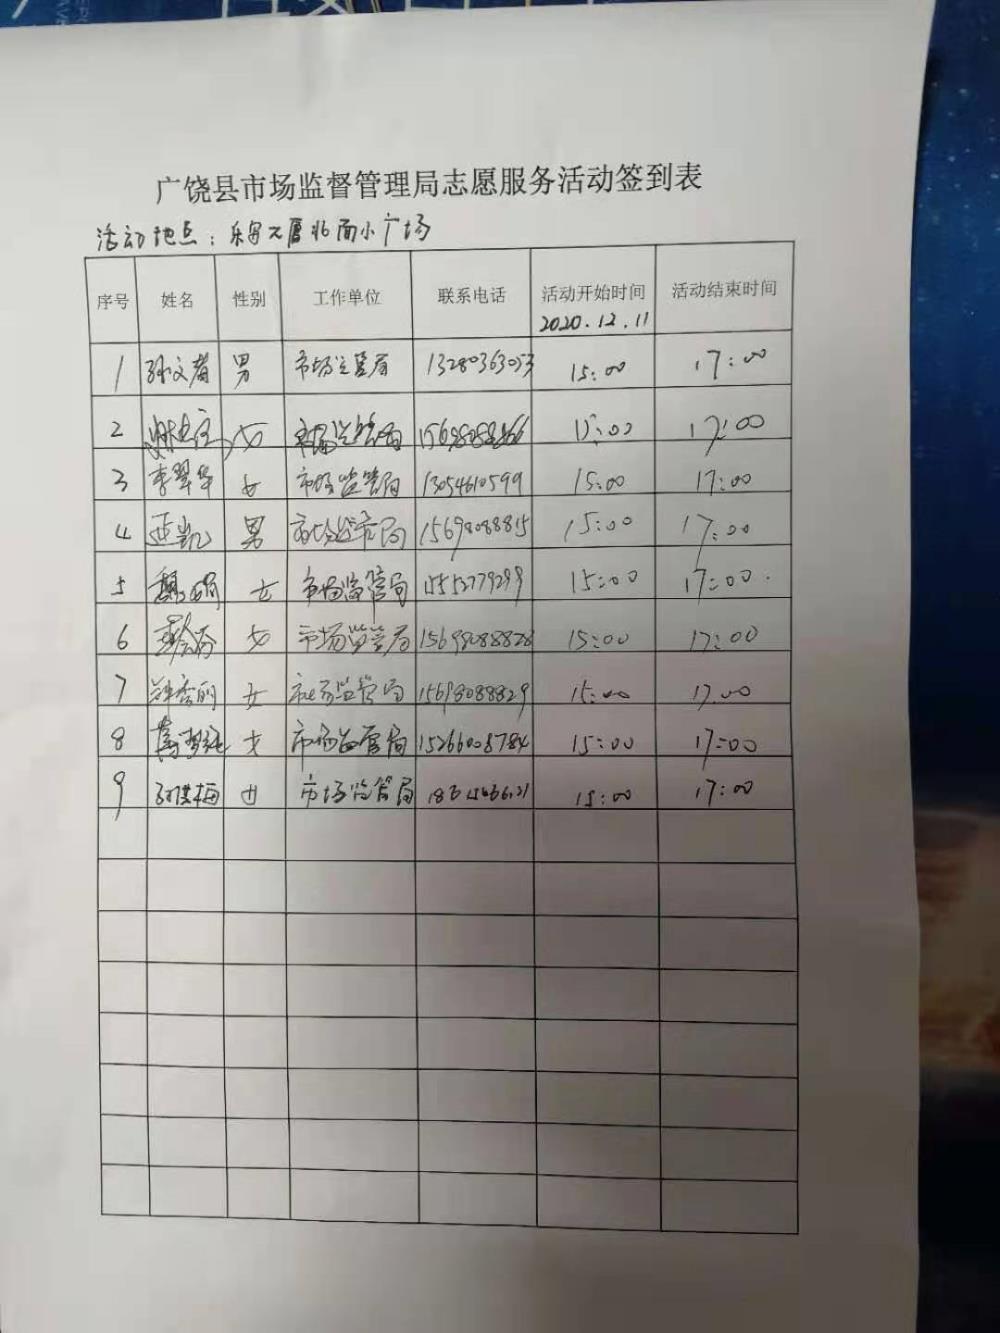 广饶县市场监督管理局志愿服务活动签到表
活动地点：乐安大厦北面小广场
序号 姓名 性别 工作单位 联系电话 活动开始时间 活动结束时间
2020.12.11
1 男 市场监管局 13280363053 15:00 17:00
2 女 市场监管局 15698088866 15:00 17:00
3 李翠华 女 市场监管局 13054610599 15:00 17:00
4 男 市场监管局 15698088815 15:00 17:00
5 女 市场监管局 15552779299 15:00 17:00.
6 女 市场监管局 15698088828 15:00 17:00
7 女 市场监管局 15698088829 15:00 17:00
8 女 市场监管局 15266008784 15:00 17:00
9 女 市场监管局 15:00 17:00